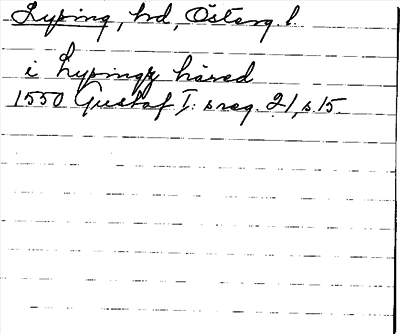 Lysing, hd, Österg. l.
i Lysingx härad
1550 Gustaf I: s reg. 21, s. 15.